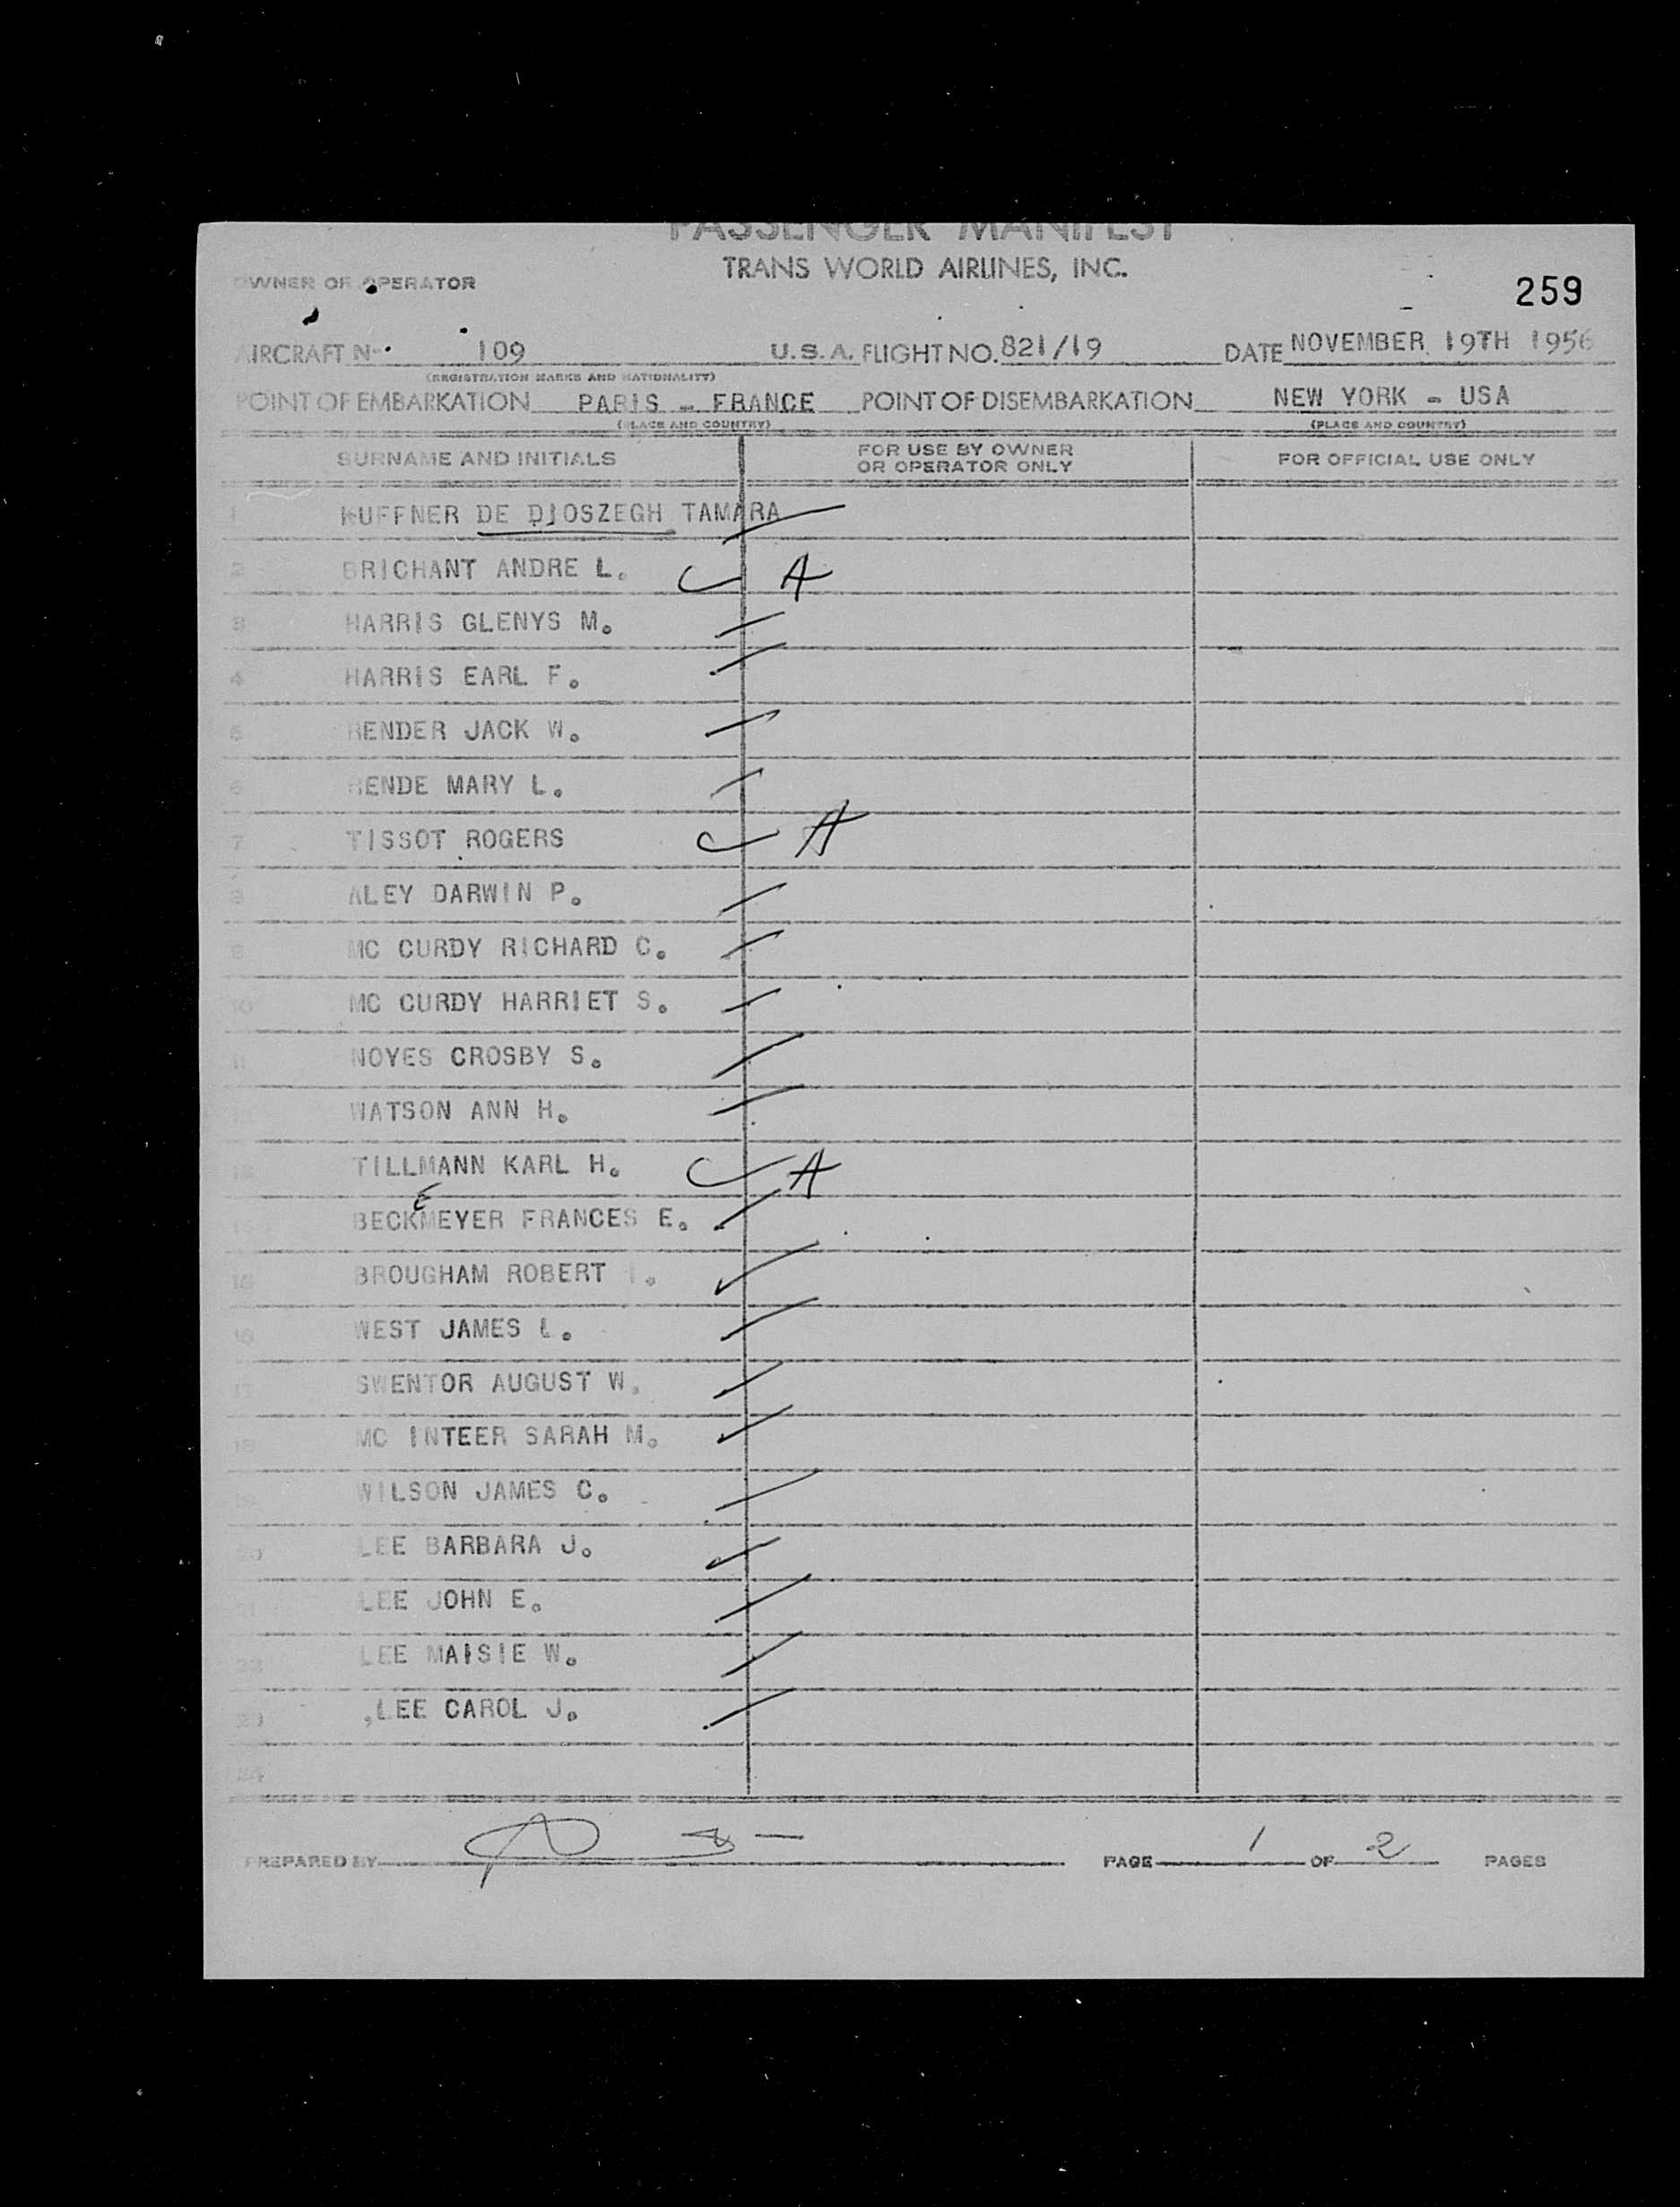 PASSENGER MANIFEST
TRANS WORLD AIRLINES, INC.
OWNER OR OPERATOR
259
AIRCRAFT No. 109 U.S.A. FLIGHT NO. 821/19 DATE NOVEMBER 19TH 1956
(REGISTRATION MARKS AND NATIONALITY)
POINT OF EMBARKATION PARIS - FRANCE POINT OF DISEMBARKATION NEW YORK - USA
(PLACE AND COUNTRY) (PLACE AND COUNTRY)
SURNAME AND INITIALS FOR USE BY OWNER OR OPERATOR ONLY FOR OFFICIAL USE ONLY
1 KUFFNER DE DIOSZEGH TAMARA
2 BRICHANT ANDRE L. A
3 HARRIS GLENYS M.
4 HARRIS EARL F.
5 RENDER JACK W.
6 RENDE MARY L.
7 TISSOT ROGERS A
8 ALEY DARWIN P.
9 MC CURDY RICHARD C.
10 MC CURDY HARRIET S.
11 NOYES CROSBY S.
12 WATSON ANN H.
13 TILLMANN KARL H. A
E
14 BECKMEYER FRANCES E.
15 BROUGHAM ROBERT I.
16 WEST JAMES L.
17 SWENTOR AUGUST W.
18 MC INTEER SARAH M.
19 WILSON JAMES C.
20 LEE BARBARA J.
21 LEE JOHN E.
22 LEE MAISIE W.
23 ,LEE CAROL J.
24
PREPARED BY PAGE 1 OF 2 PAGES